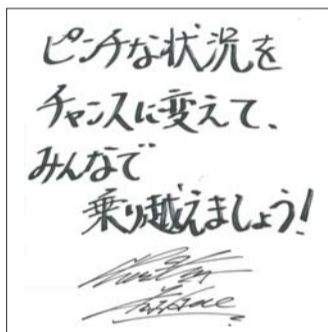 ピンチな状況を
チャンスに変えて、
みんなで
乗り越えましょう!